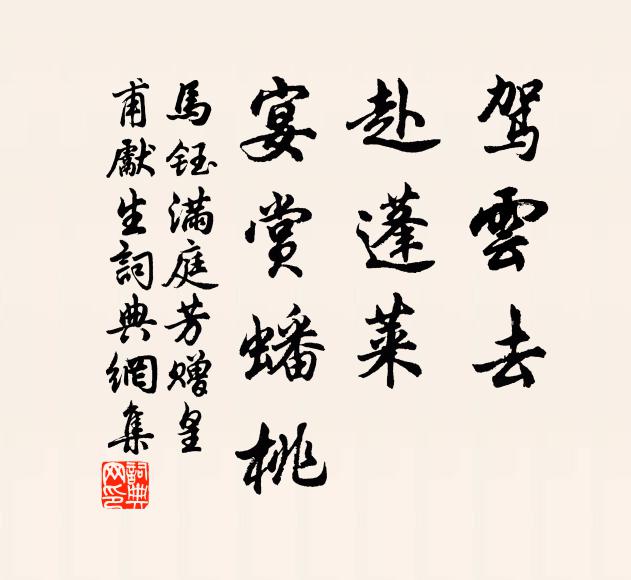 駕雲去
赴蓬萊
宴賞蟠桃
馬鈺滿庭芳贈皇
甫獻生詞典網集
詞典网印